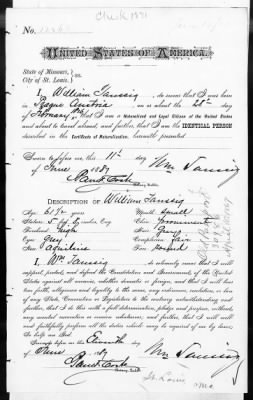 No.
UNITED STATES OF AMERICA.
State of Missouri,
City of St. Louis.
I, William Taussig, do swear that I was born
in Prague Austria on or about the 28th day
of February, that I am a Naturalized and Legal Citizen of the United States
and about to travel abroad, and further, that I am the IDENTICAL PERSON
described in the Certificate of Naturalization, herewith presented.
Sworn to before me, this 11th day
of June 1887
Wm Taussig
Notary Public.
DESCRIPTION OF William Taussig
Age: 61 1/2 years
Mouth: small
Stature: 5 ft inches, Eng.
Chin: prominent
Forehead: high
Hair: Gray
Eyes: Grey
Complexion: fair
Nose: aquiline
Face: round
I, Wm. Taussig, do solemnly swear that I will
support, protect and defend the Constitution and Government of the United
States against all enemies, whether domestic or foreign, and that I will bear
true faith, allegiance and loyalty to the same, any ordinance, resolution or law
of any State Convention or Legislature to the contrary notwithstanding; and
further, that I do this with a full determination, pledge and purpose, without
any mental reservation or evasion whatsoever, and further, that I will well
and faithfully perform all the duties which may be required of me by law:
So help me God.
Sworn to before me this Eleventh day
of June 1887
Wm Taussig
Notary Public
St. Louis, Mo